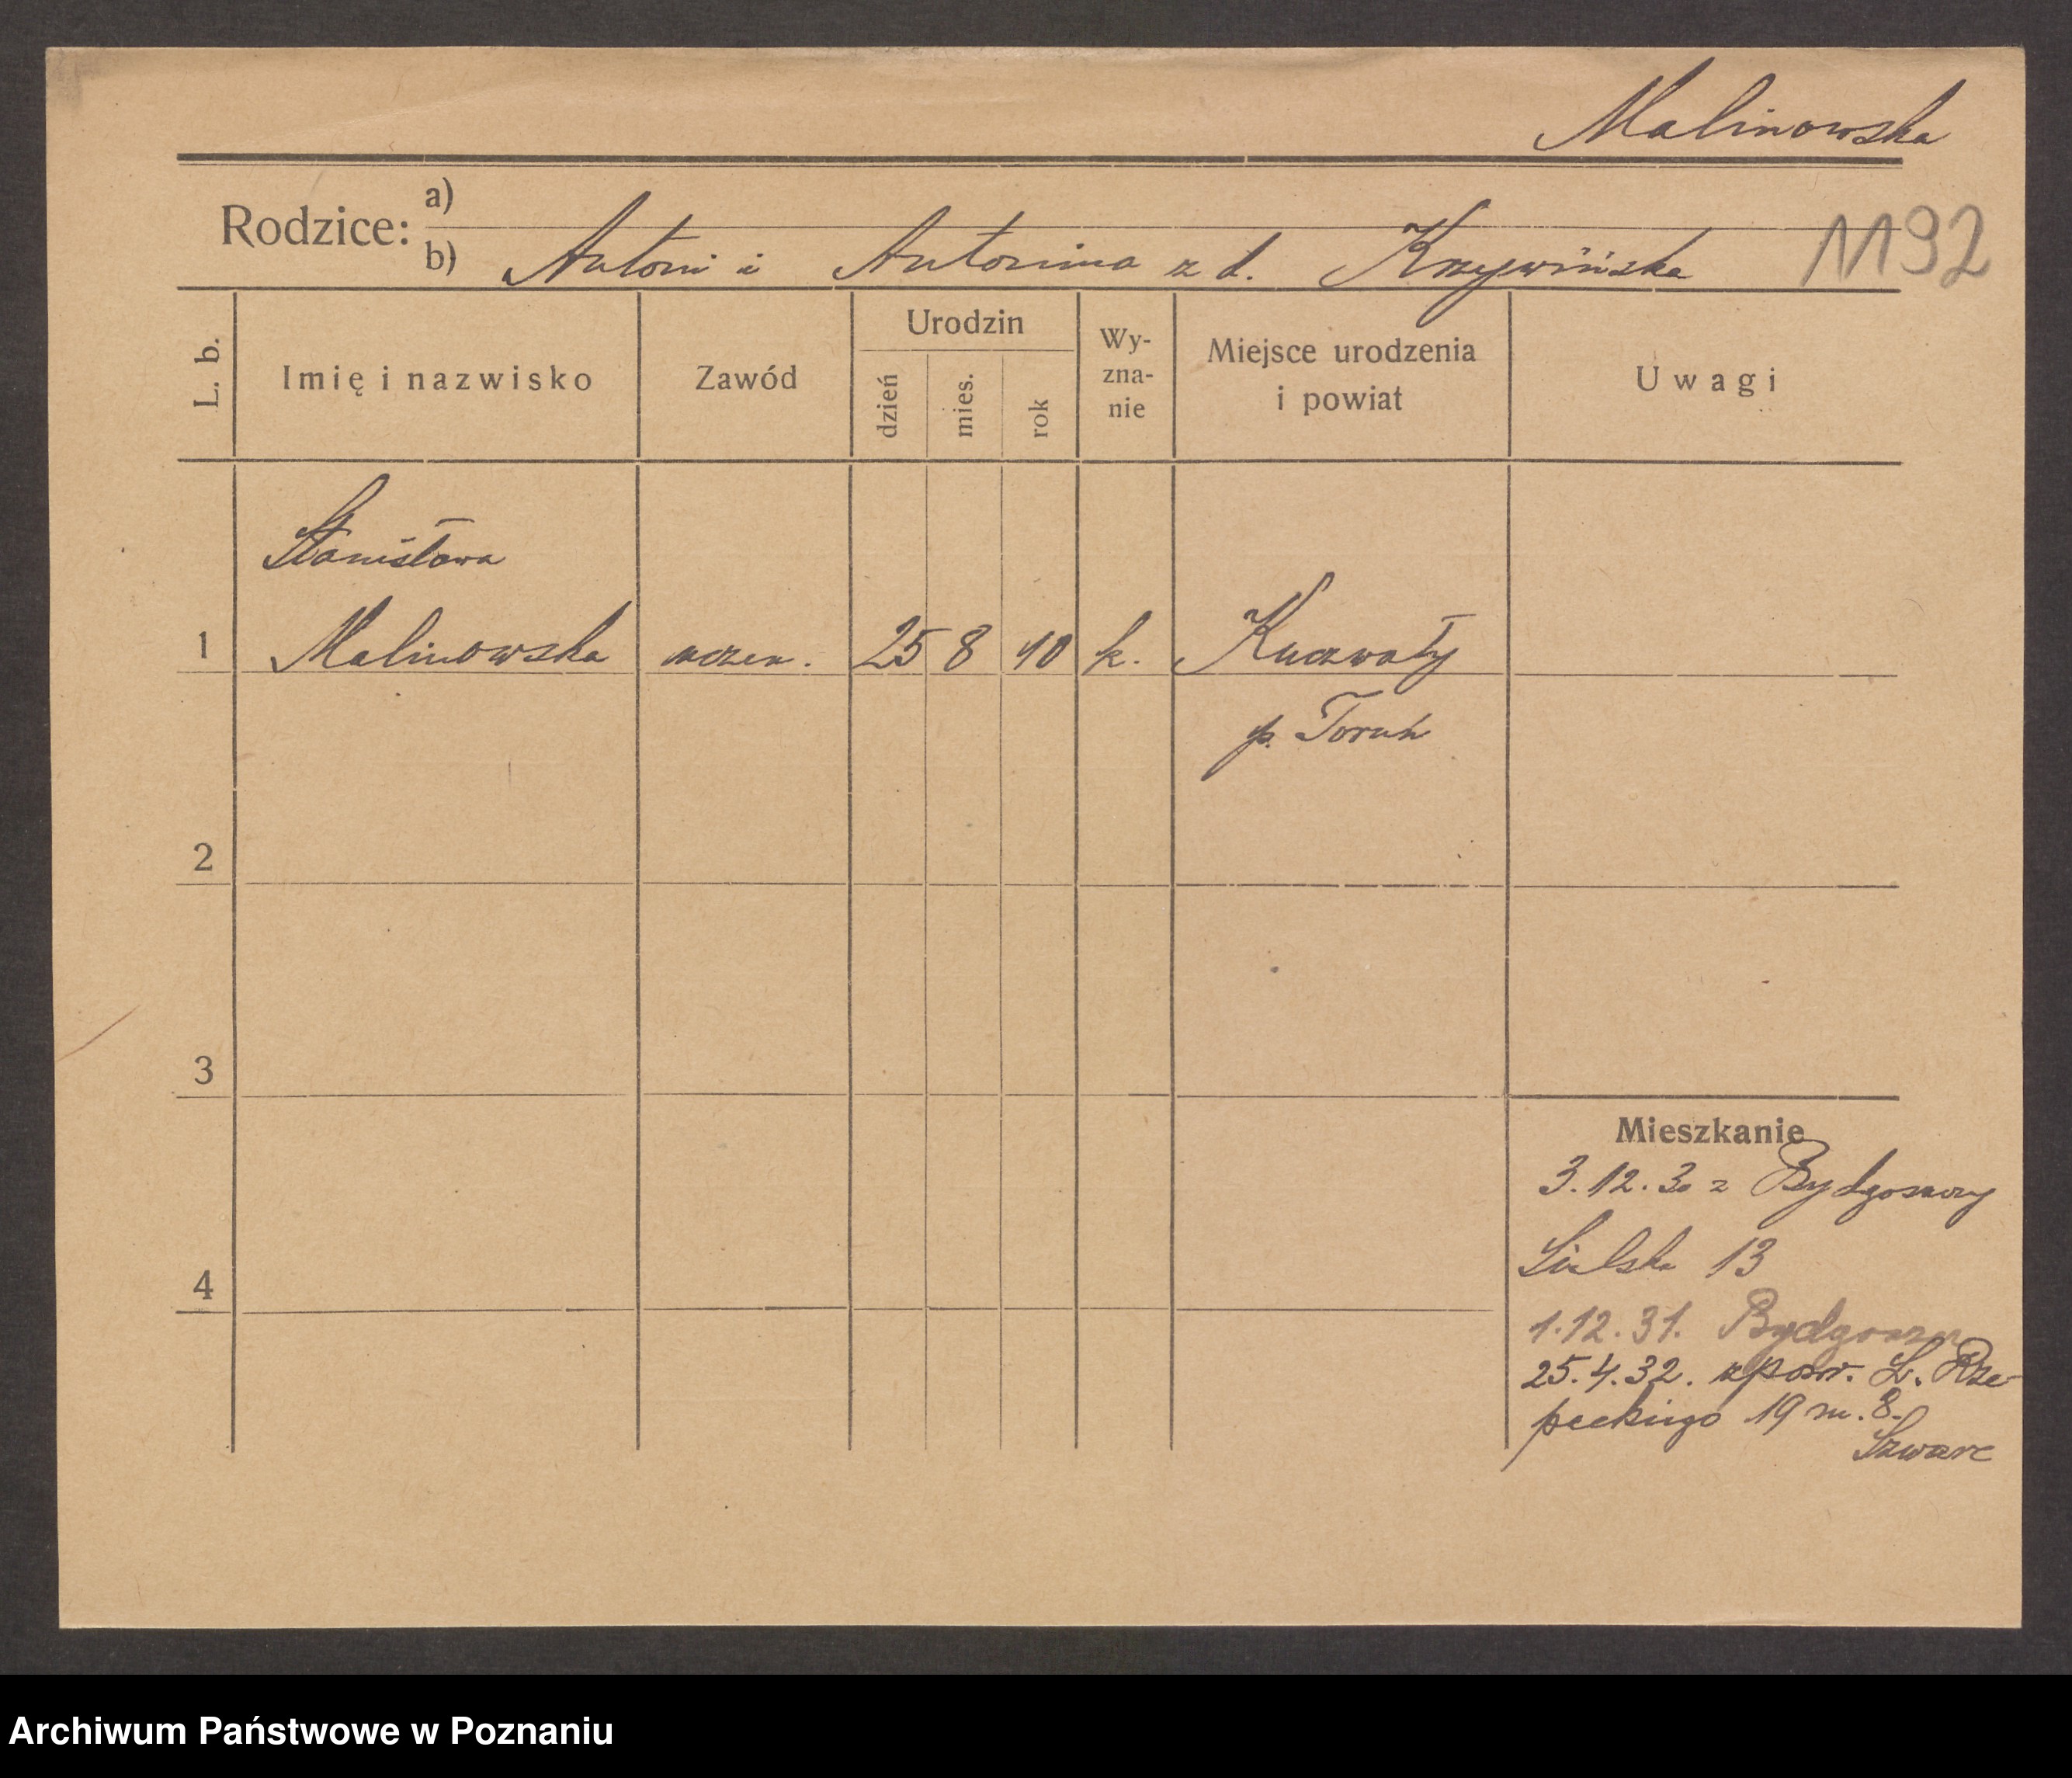 Malinowska
Rodzice: a)
b) Antoni i Antonina z d. Krzywińska
1192
L. b.
Imię i nazwisko
Zawód
Urodzin
dzień
mies.
rok
Wy-
zna-
nie
Miejsce urodzenia
i powiat
Uwagi
Stanisława
1 Malinowska uczen. 25 8 10 k. Kuczwały
p. Toruń
2
3
4
Mieszkanie
3.12.30 z Bydgoszczy
13
1.12.31. Bydgoszcz
25.4.32. zpow. L. Rze-
peckiego 19 m. 8.
Szwarc
Archiwum Państwowe w Poznaniu